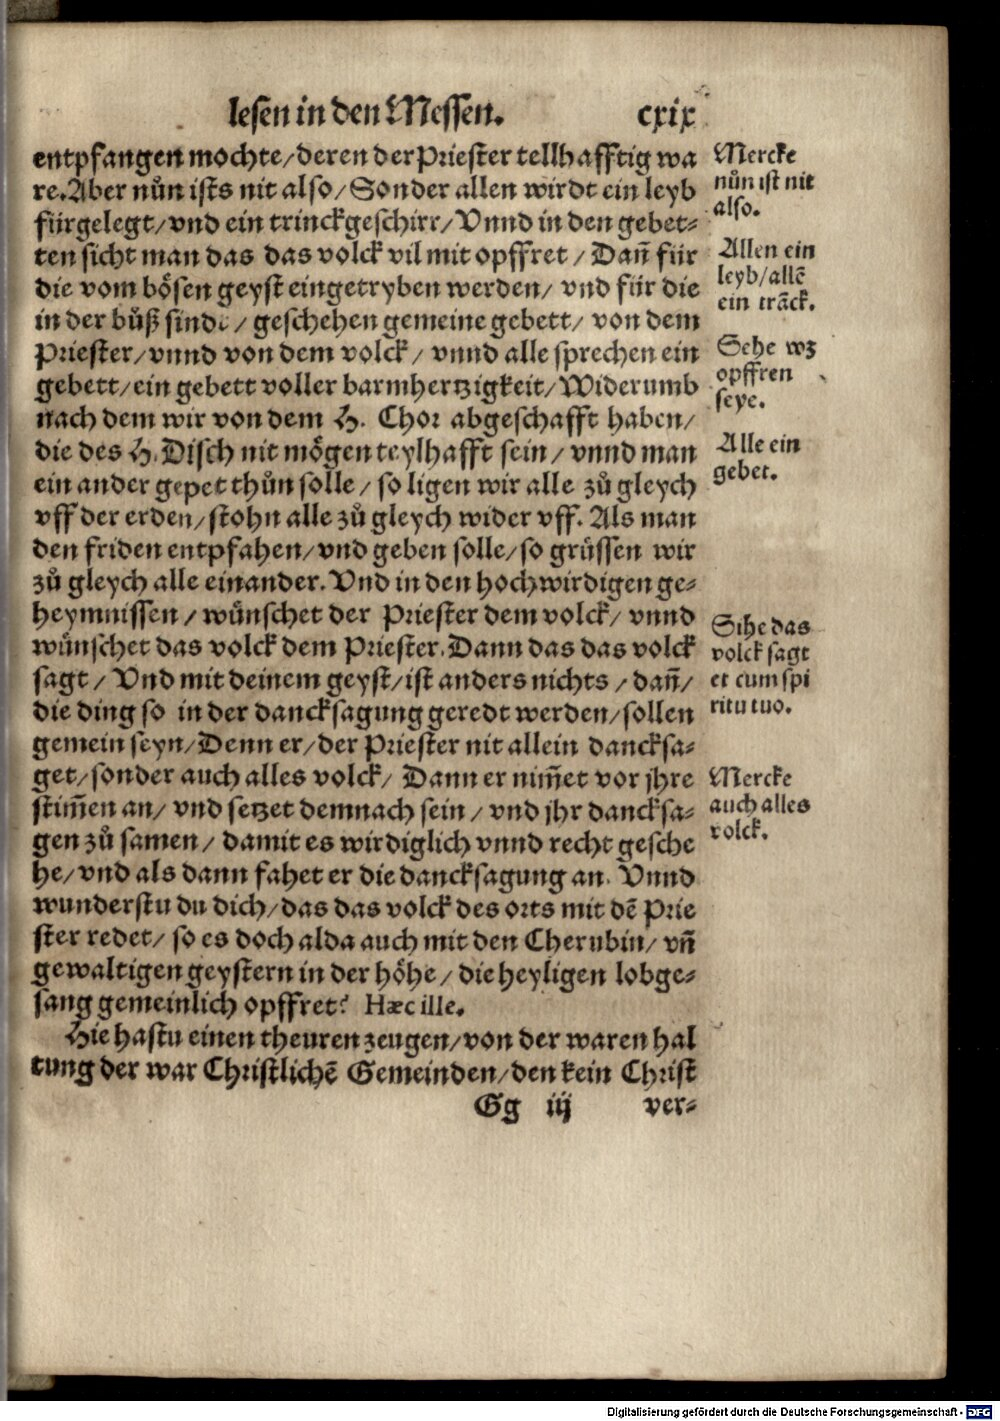 lesen in den Messen. cxix
entpfangen mochte/deren der Priester tellhafftig wa
re. Aber nůn ists nit also/Sonder allen wirdt ein leyb
fürgelegt/vnd ein trinckgeschirr/Vnnd in den gebet⸗
ten sicht man das das volck vil mit opffret/Dañ für
die vom bösen geyst eingetryben werden/vnd für die
in der bůß sindt/geschehen gemeine gebett/von dem
Priester/vnnd von dem volck/vnnd alle sprechen ein
gebett/ein gebett voller barmhertzigkeit/Widerumb
nach dem wir von dem H. Chor abgeschafft haben/
die des H. Disch nit mögen teylhafft sein/vnnd man
ein ander gepet thůn solle/so ligen wir alle zů gleych
vff der erden/stohn alle zů gleych wider vff. Als man
den friden entpfahen/vnd geben solle/so grüssen wir
zů gleych alle einander. Vnd in den hochwirdigen ge⸗
heymnissen/wünschet der Priester dem volck/vnnd
wünschet das volck dem Priester. Dann das das volck
sagt/Vnd mit deinem geyst/ist anders nichts/dañ/
die ding so in der dancksagung geredt werden/sollen
gemein seyn/Denn er/der Priester nit allein dancksa⸗
get/sonder auch alles volck/Dann er nim̃et vor jhre
stim̃en an/vnd setzet demnach sein/vnd jhr dancksa⸗
gen zů samen/damit es wirdiglich vnnd recht gesche
he/vnd als dann fahet er die dancksagung an. Vnnd
wunderstu du dich/das das volck des orts mit dē Prie
ster redet/so es doch alda auch mit den Cherubin/vñ
gewaltigen geystern in der höhe/die heyligen lobge⸗
sang gemeinlich opffret? Hæc ille.
Hie hastu einen theuren zeugen/von der waren hal
tung der war Christlichē Gemeinden/den kein Christ
Gg iij ver⸗
Mercke
nůn ist nit
also.
Allen ein
leyb/allē
ein trāck.
Sehe wz
opffren
seye.
Alle ein
gebet.
Sihe das
volck sagt
et cum spi
ritu tuo.
Mercke
auch alles
volck.
Digitalisierung gefördert durch die Deutsche Forschungsgemeinschaft - DFG